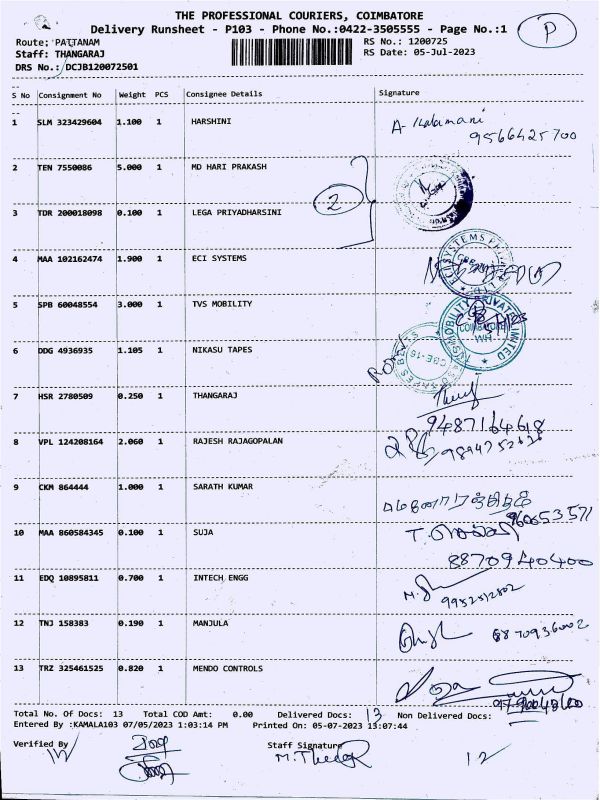 THE PROFESSIONAL COURIERS, COIMBATORE
Delivery Runsheet - P103 - Phone No.:0422-3505555 - Page No.:1
P
Route: PATTANAM
RS No.: 1200725
Staff: THANGARAJ
RS Date: 05-Jul-2023
DRS No.: DCJB120072501
S No Consignment No Weight PCS Consignee Details Signature
1 SLM 323429604 1.100 1 HARSHINI A. Kalamani
9566425700
2 TEN 7550086 5.000 1 MD HARI PRAKASH
2
3 TDR 200018098 0.100 1 LEGA PRIYADHARSINI
4 MAA 102162474 1.900 1 ECI SYSTEMS
5 SPB 60048554 3.000 1 TVS MOBILITY
6 DDG 4936935 1.105 1 NIKASU TAPES
7 HSR 2780509 0.250 1 THANGARAJ
9487164618
8 VPL 124208164 2.060 1 RAJESH RAJAGOPALAN
9 CKM 864444 1.000 1 SARATH KUMAR
10 MAA 860584345 0.100 1 SUJA
8870940400
11 EDQ 10895811 0.700 1 INTECH ENGG
12 TNJ 158383 0.190 1 MANJULA
13 TRZ 325461525 0.820 1 MENDO CONTROLS
Total No. Of Docs: 13 Total COD Amt: 0.00 Delivered Docs: 13 Non Delivered Docs:
Entered By :KAMALA103 07/05/2023 1:03:14 PM Printed On: 05-07-2023 13:07:44
Verified By Staff Signature
12